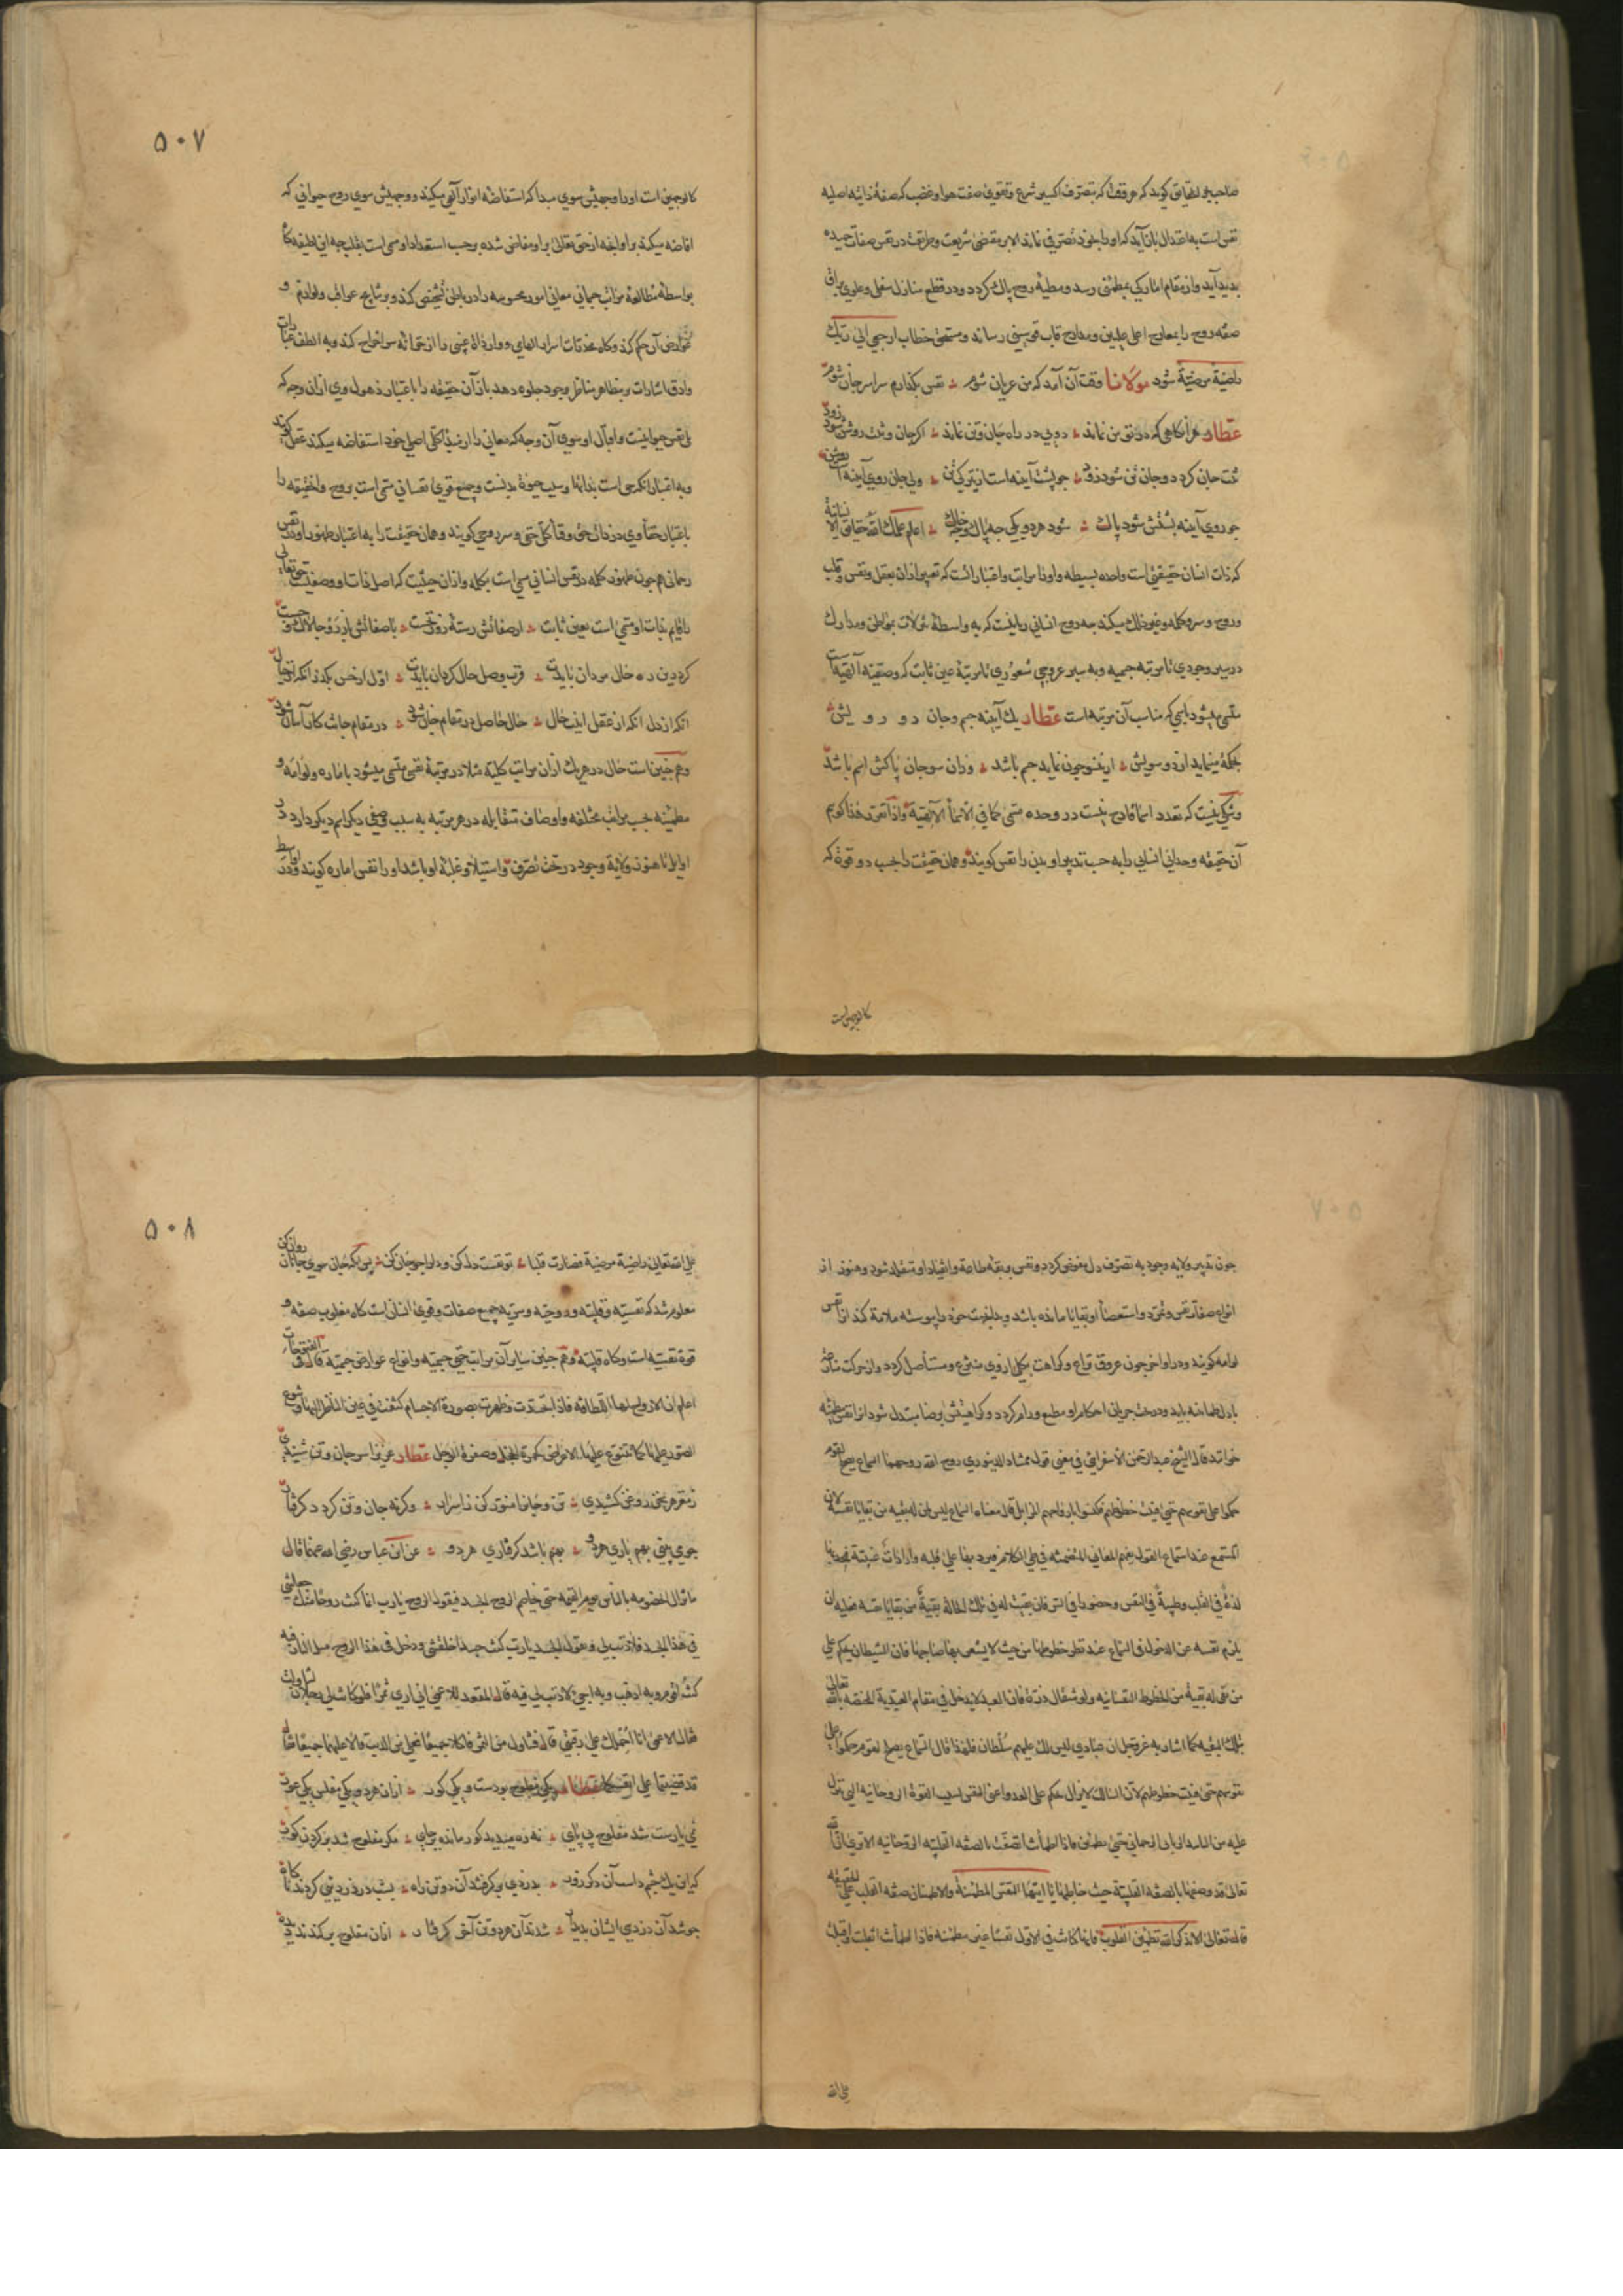 صاحبدل لطایق کویند که هر وقت که بتصرف اکسیر شرع و تقوی صفت هوا و غضب که صفة ذاتیه اصلیه
نفس است به اعتدال باز آید که او را بخود تصرفی نماند الا بر مقتضی شریعت و طریقت در نفس صفات حمیده
پدید آید و از مقام امارکی بمطمئنی رسد و مطیهٔ روح پاک کردد و در قطع منازل سفلی و علوی براق
صفه روح را بمعارج اعلی علیین و مدارج قاب قوسین رساند و مستحق خطاب ارجعی الی ربک
راضیة مرضیة شود مولانا وقت آن آمد که من عریان شوم نفس بکذارم سراسر جان شوم
عطار هر آنکاهی که در تو من نماند دویی در راه جان و تن نماند اکر جان و تنت روشن شود زود
تنت جان کردد و جان تن شود زود چو پشت آینه است از تیرکی تن ولی جان روی آینه است روشن
چو روی آینه پشتش شود پاک شود هر دو یکی چه پاک و چه خاک اعلم علمک الله حقایق الانسانیة
که ذات انسان حقیقتی است واحده بسیطه و او را مراتب و اعتبارات است که تعبیر از آن بعقل و نفس و قلب
و روح و سر و کلمه و غیر ذلک میکند چه روح انسانی ربانیست که به واسطهٔ تنزلات بمواطن و مدارک
در سیر وجودی تا مرتبه جمیه و به سیر عروجی شعوری تا مرتبهٔ عین ثابت که وصفیه آلهیه است
متسمی میشود باسمی که مناسب آن مرتبه است عطار یک آینه جسم و جان دو رویش
بحکمة مینماید از دو سویش ازین سو چون نماید جسم باشد وزان سو جان پاکش اسم باشد
و شکی نیست که تعدد اسما قادح نیست در وحده مسمی کما فی الاسماء الالهیة و اذا تقرر هذا کویم
آن حقیقه وحدانی انسانی را به حسب تدبیر او بدن را نفس کویند و همان حقیقت را بحسب دو قوة که
کالوجهین است
۵۰۷
کالوجهین است او را وجهیش سوی مبدا که استفاضهٔ انوار آلهی میکند و وجهیش سوی روح حیوانی که
افاضه میکند بر او آنچه از حق تعالی بر او مفاض شده بر حسب استعداد او مسمی است بقلب چه این لطیفه کاه
بواسطهٔ مطالعهٔ مراتب جمانی معانی امور محسوسه را در باطن تشخص کند و بر نتایج عواقب و لوازم و
عوارض آن حکم کند و کاه مخدرات اسرار الهامی و واردات غیبی را از ختم خانه سر اخراج کند و به الطف عبارات
و ادق اشارات و مظاهر مناظر وجود جلوه دهد باز آن حقیقه را باعتبار ذهول وی از آن وجه که
یلی نفس حیوانیست و اقبال او سوی آن وجه که معانی را از مبدا کلی اصلی خود استفاضه میکند عقل کویند
و به اعتبار آنکه حی است بذاتها و سبب حیوة بدنست و جمیع قوی نفسانی مسمی است بروح و احقیقه را
باعتبار خفاء وی در ذات حق و فنا کلی خفی و سر روحی کویند و همان حقیقت را به اعتبار ظهور او در نفس
رحمانی هم چون ظهور کلمه در نفس انسانی مسمی است بکلمه و از آن حیثیت که اصل ذات او و صفیست حق تعالی
را قایم بذات او مسمی است بعین ثابت از صفاتش رستهٔ رو نخست با صفاتش باز رو چالاک و چست
کردی درین ره حال مردان بایدت قرب وصل حال کردان بایدت اول از حس بکذر آنکه از خیال
آنکه از دل آنکه از عقل اینت حال حال حاصل در مقام جان شود در مقام جانت کار آسان شود
و هم چنین است حال در هر یک از آن مراتب کلیه مثلا در مرتبهٔ نفسی متسمی میشود باماره و لوامه و
مطمئنه بحسب مراتب مختلفه و اوصاف متقابله در هر مرتبه به سبب وصفی دیکر اسم دیکر دارد در
اوایل تا هنوز ولایة وجود در تحت تصرف و استیلا و غلبه او باشد او را نفس اماره کویند و در اواسط
چون تدبیر ولایه وجود به تصرف دل مفوض کردد و نفس بربقه طاعة و انقیاد او متقلد شود و هنوز از
انواع صفات نفس و تمرد و استعصاء او بقایا مانده باشد و بدان جهت خود را پیوسته ملامة کند او را نفس
لوامه کویند و در اواخر چون عروق نزاع و کراهت بکلی از وی منتزع و مستأصل کردد و از حرکت منازعه
با دل طمانینه یابد و در تحت جریان احکام او مطیع و رام کردد و کراهیتش برضا مبتدل شود او را نفس مطمئنه
خوانند قال الشیخ عبد الرحمن الاسفراینی فی معنی قول ممشاد الدینوری روح الله روحهما السماع یصح لقوم
حکموا علی نفوسهم حتی میتت حظوظهم فکنسوا المزابل بارواحهم قال معناه السماع لیس لمن له بقیه من بقایا نفسه لان
المستمع عند استماع القول یفهم المعانی المتضمنه فی طی الکلام فیرد بها علی قلبه واردات غیبیة فیجد بها
لذة فی القلب و طیبة فی النفس و حضورا فی السر فان بقیت له فی تلک الحالة بقیة من بقایا نفسه فعلیه ان
یلزم نفسه عن الدخول فی السماع عند تطرق حظوظها من حیث لا یشعر بها صاحبها فان الشیطان یحکم علی
من بقی له بقیة من الحظوظ النفسانیه ولو مثقال ذرة فان العبد لا یدخل فی مقام العبدیة المختصه بالله تعالی
بتلک البقیه کما اشار به عز و جل ان عبادی لیس لک علیهم سلطان فلهذا قال السماع یصح لقوم حکموا علی
نفوسهم حتی میتت حظوظهم لان السالک لا یزال یحکم علی العدو اعنی النفس بسبب القوة الروحانیه التی تنزل
علیه من الباب الربانی الرحمانی حتی یطمئن فاذا اطمأنت اتصفت بالصفه القلبیه الروحانیه الا تری ان الله
تعالی قد وصفها بالصفه القلبیة حیث خاطبها یا ایتها النفس المطمئنة و الاطمینان صفه القلب علی الحقیقه
قال تعالی الا بذکر الله تطمئن القلوب فانها کانت فی الاول نفسا غیر مطمئنه فاذا اطمأنت انقلبت و اقبلت
علی الله
۵۰۸
علی الله تعالی راضیة مرضیة فصارت قلبا تو نفست دل کن و دل را چو جان کن پس آنکه جان سوی جانان روان کن
معلوم شد که نفسیه و قلبیه و روحیه و سریه جمیع صفات و قوی انسانی است کاه مغلوب صفه و
قوة نفسیه است و کاه قلبیه و هم چنین سایر آن مراتب حتی جسمیه و انواع عوارض جسمیة قال فی الفتوحات
اعلم ان الارواح لها اللطافه فاذا تجسدت و ظهرت بصورة الاجسام کثفت فی عین الناظر الیها و تنوع
الصور علیها کما تتنوع علیها الاعراض کحمرة الخجل و صفرة الوجل عطار عزیزا سر جان و تن شنیدی
ز مغز هر سخن روغن کشیدی تن و جانرا منور کن ز اسرار و کرنه جان و تن کردد کرفتار
چو می بینی بهم یاری هر دو بهم باشد کرفتاری هر دو عن ابن عباس رضی الله عنهما قال
ما تزال الخصومه بالناس یوم القیمه حتی یخاصم الروح الجسد فیقول الروح یا رب انما کنت روحا منک جعلتنی
فی هذا الجسد فلا ذنب لی و یقول الجسد یا رب کنت جسدا خلقتنی و دخل فی هذا الروح مثل النار فبه
کنت اقوم و به اذهب و به اجیئ لا ذنب لی فیه قال المقعد للاعمی انی اری ثمرا فلو کانت لی رجلان لتناولت
فقال الاعمی انا احملک علی رقبتی قال فتناول من الثمر فاکلا جمیعا فعلی من الذنب قالا علیهما جمیعا فقال
قد قضیتما علی انفسکما عطار یکی مفلوج بودست و یکی کور از آن هر دو یکی مفلس یکی عور
نمی یارست شد مفلوج بی پای نه ره میدید کور مانده بر جای مکر مفلوج شد بر کردن کور
که این یک چشم داشت آن دکر زور بدزدی برکرفتند آن دو تن راه بشب در دزدیی کردند ناکاه
چو شد آن دزدی ایشان پدیدار شدند آن هر دو تن آخر کرفتار از آن مفلوج برکندند دیده